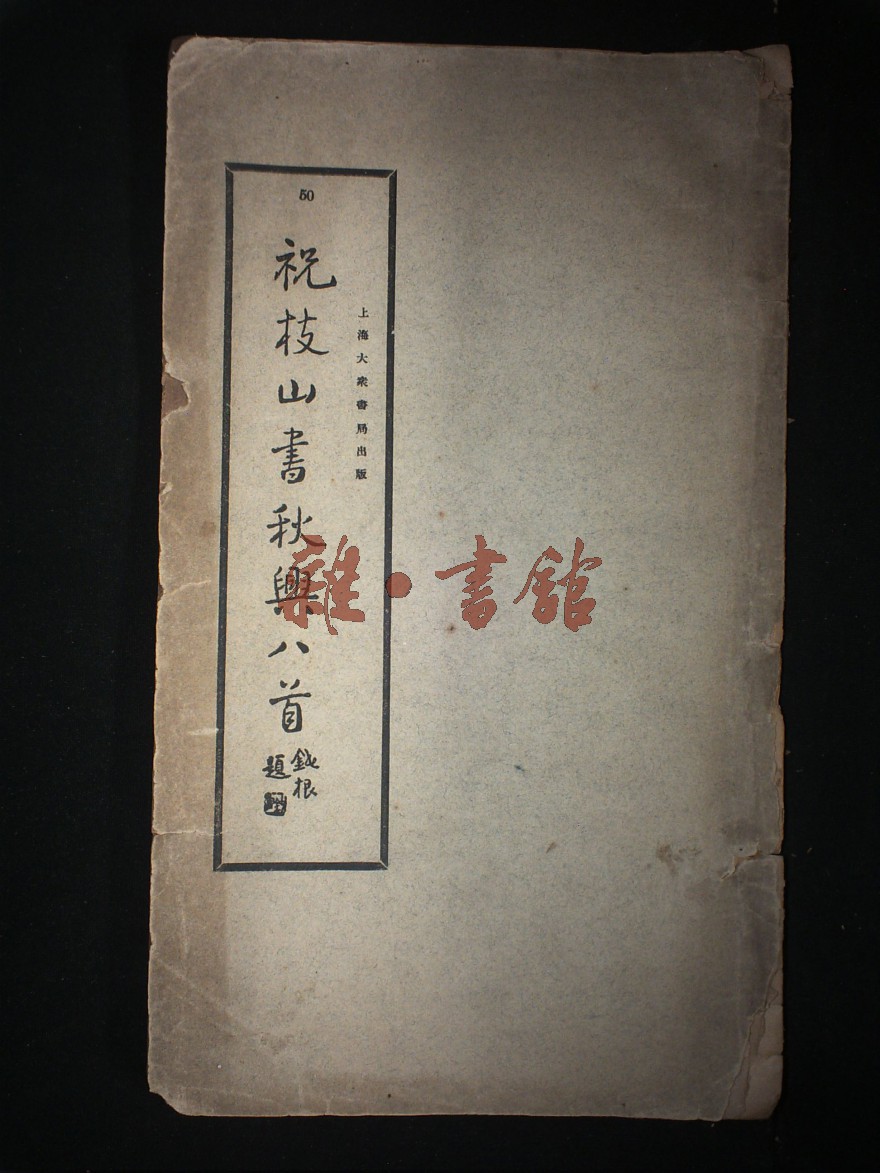 50
上海大衆書局出版
祝枝山書秋興八首
鐵根
題
雜·書館